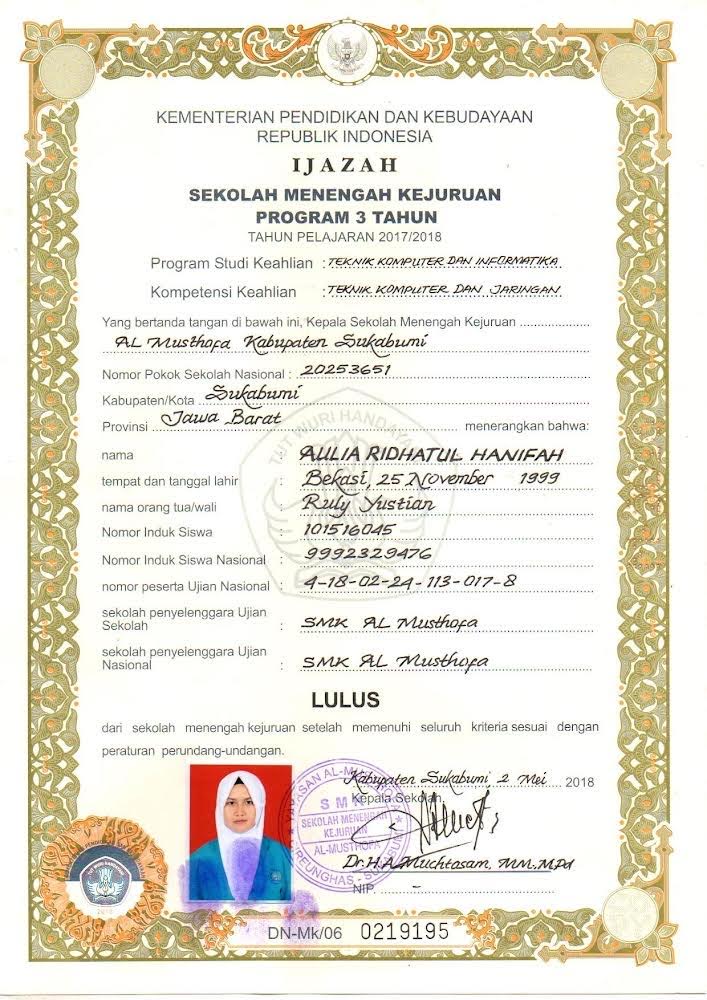 KEMENTERIAN PENDIDIKAN DAN KEBUDAYAAN
REPUBLIK INDONESIA
IJAZAH
SEKOLAH MENENGAH KEJURUAN
PROGRAM 3 TAHUN
TAHUN PELAJARAN 2017/2018
Program Studi Keahlian : TEKNIK KOMPUTER DAN INFORMATIKA
Kompetensi Keahlian : TEKNIK KOMPUTER DAN JARINGAN
Yang bertanda tangan di bawah ini, Kepala Sekolah Menengah Kejuruan
AL Musthofa Kabupaten Sukabumi
Nomor Pokok Sekolah Nasional : 20253651
Kabupaten/Kota Sukabumi
Provinsi Jawa Barat menerangkan bahwa:
TUT WURI HANDAYANI
nama : AULIA RIDHATUL HANIFAH
tempat dan tanggal lahir : Bekasi, 25 November 1999
nama orang tua/wali : Ruly Yustian
Nomor Induk Siswa : 101516045
Nomor Induk Siswa Nasional : 9992329476
nomor peserta Ujian Nasional : 4-18-02-24-113-017-8
sekolah penyelenggara Ujian
Sekolah : SMK AL Musthofa
sekolah penyelenggara Ujian
Nasional : SMK AL Musthofa
LULUS
dari sekolah menengah kejuruan setelah memenuhi seluruh kriteria sesuai dengan
peraturan perundang-undangan.
Kabupaten Sukabumi 2 Mei 2018
Kepala Sekolah,
SMK
SEKOLAH MENENGAH
KEJURUAN
AL-MUSTHOFA
Dr. H. A. Muchtasam, MM, M.Pd
NIP. -
DN-Mk/06 0219195